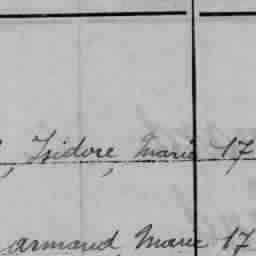 , Isidore, Marie 17
, Armand, Marie 17